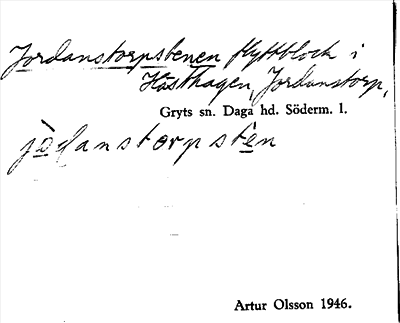 Jordanstorpstenen flyttblock i
Hästhagen, Jordanstorp,
Gryts sn. Daga hd. Söderm. l.
jo̱danstorpste̱n
Artur Olsson 1946.